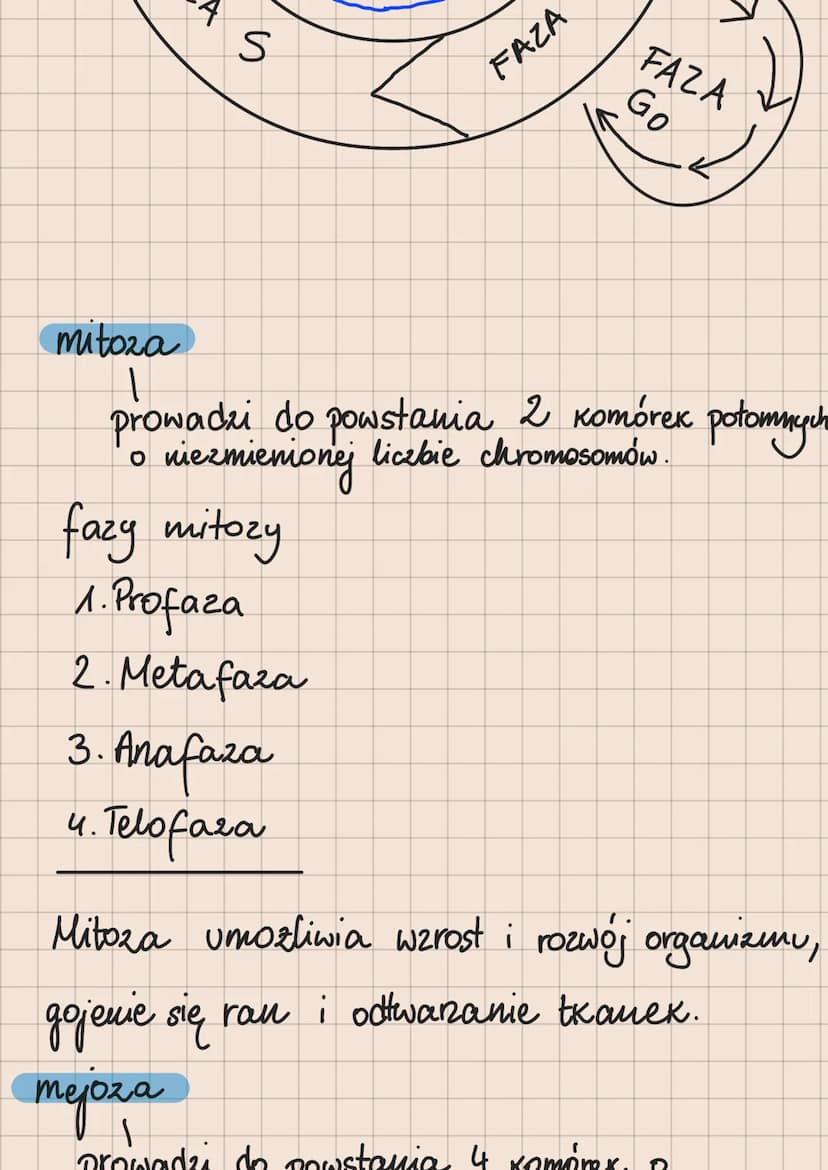 S
FAZA
FAZA
G0
mitoza
prowadzi do powstania 2 komórek potomnych
o niezmienionej liczbie chromosomów.
fazy mitozy
1. Profaza
2. Metafaza
3. Anafaza
4. Telofaza
Mitoza umożliwia wzrost i rozwój organizmu,
gojenie się ran i odtwarzanie tkanek.
mejoza
prowadzi do powstania 4 komórek o